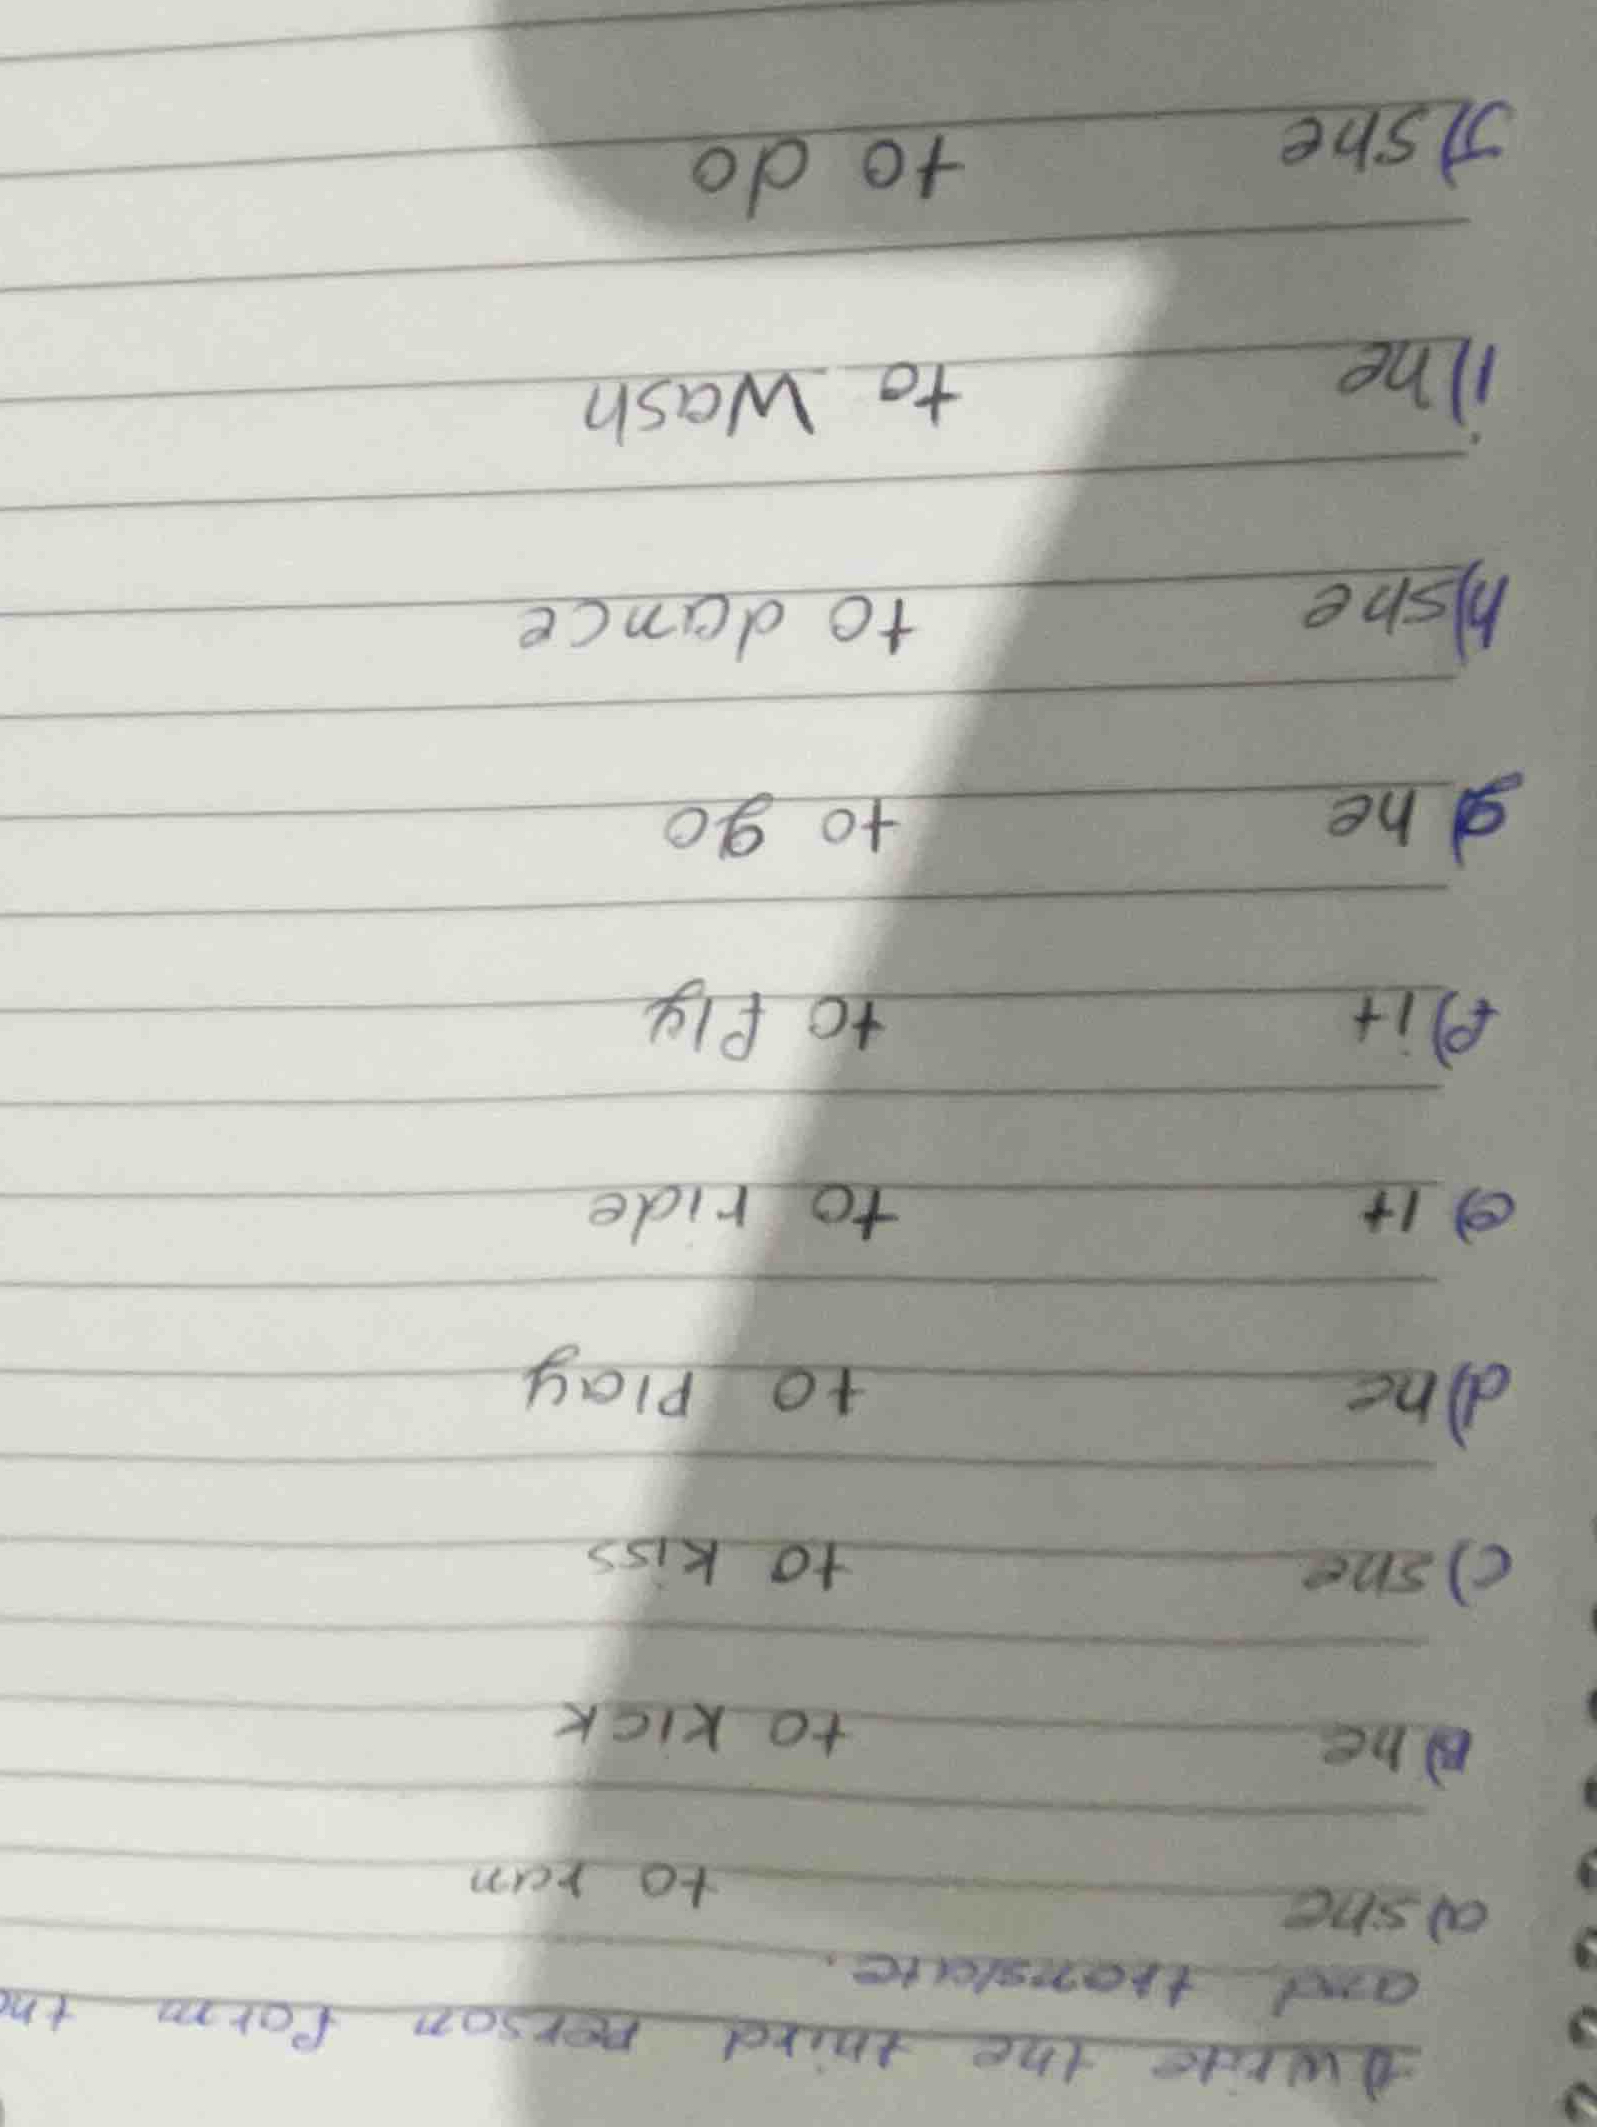 1) write the third person form
and translate.
a) she to run
B) he to kick
c) she to kiss
d) he to play
e) It to ride
f) it to fly
g) he to go
h) she to dance
i) he to wash
J) she to do